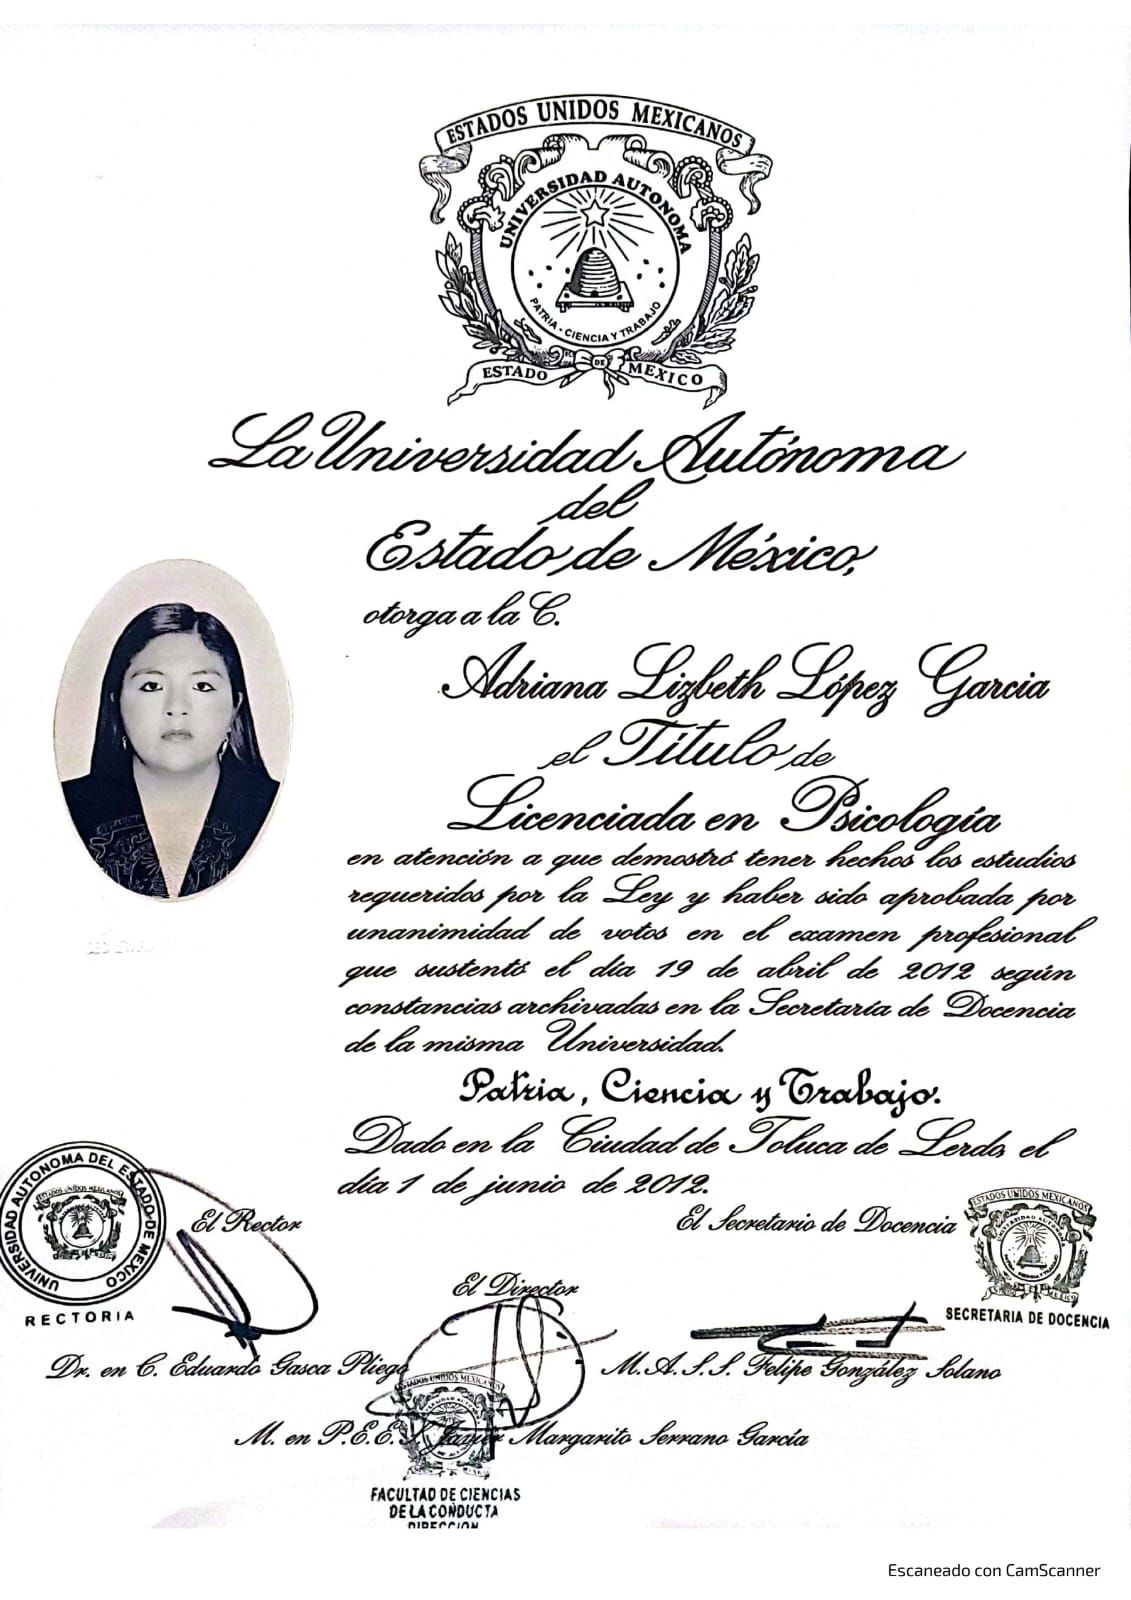 ESTADOS UNIDOS MEXICANOS
UNIVERSIDAD AUTONOMA
PATRIA · CIENCIA Y TRABAJO
ESTADO DE MEXICO
La Universidad Autónoma
del
Estado de México,
otorga a la C.
Adriana Lizbeth López Garcia
el Título de
Licenciada en Psicología
en atención a que demostró tener hechos los estudios
requeridos por la Ley y haber sido aprobada por
unanimidad de votos en el examen profesional
que sustentó el día 19 de abril de 2012 según
constancias archivadas en la Secretaría de Docencia
de la misma Universidad.
Patria, Ciencia y Trabajo.
Dado en la Ciudad de Toluca de Lerdo, el
día 1 de junio de 2012.
UNIVERSIDAD AUTONOMA DEL ESTADO DE MEXICO
ESTADOS UNIDOS MEXICANOS
RECTORIA
El Rector
El Secretario de Docencia
ESTADOS UNIDOS MEXICANOS
SECRETARIA DE DOCENCIA
El Director
Dr. en C. Eduardo Gasca Pliego
M.A.S.S. Felipe González Solano
ESTADOS UNIDOS MEXICANOS
M. en P.E.E.S. Javier Margarito Serrano García
FACULTAD DE CIENCIAS
DE LA CONDUCTA
DIRECCION
Escaneado con CamScanner